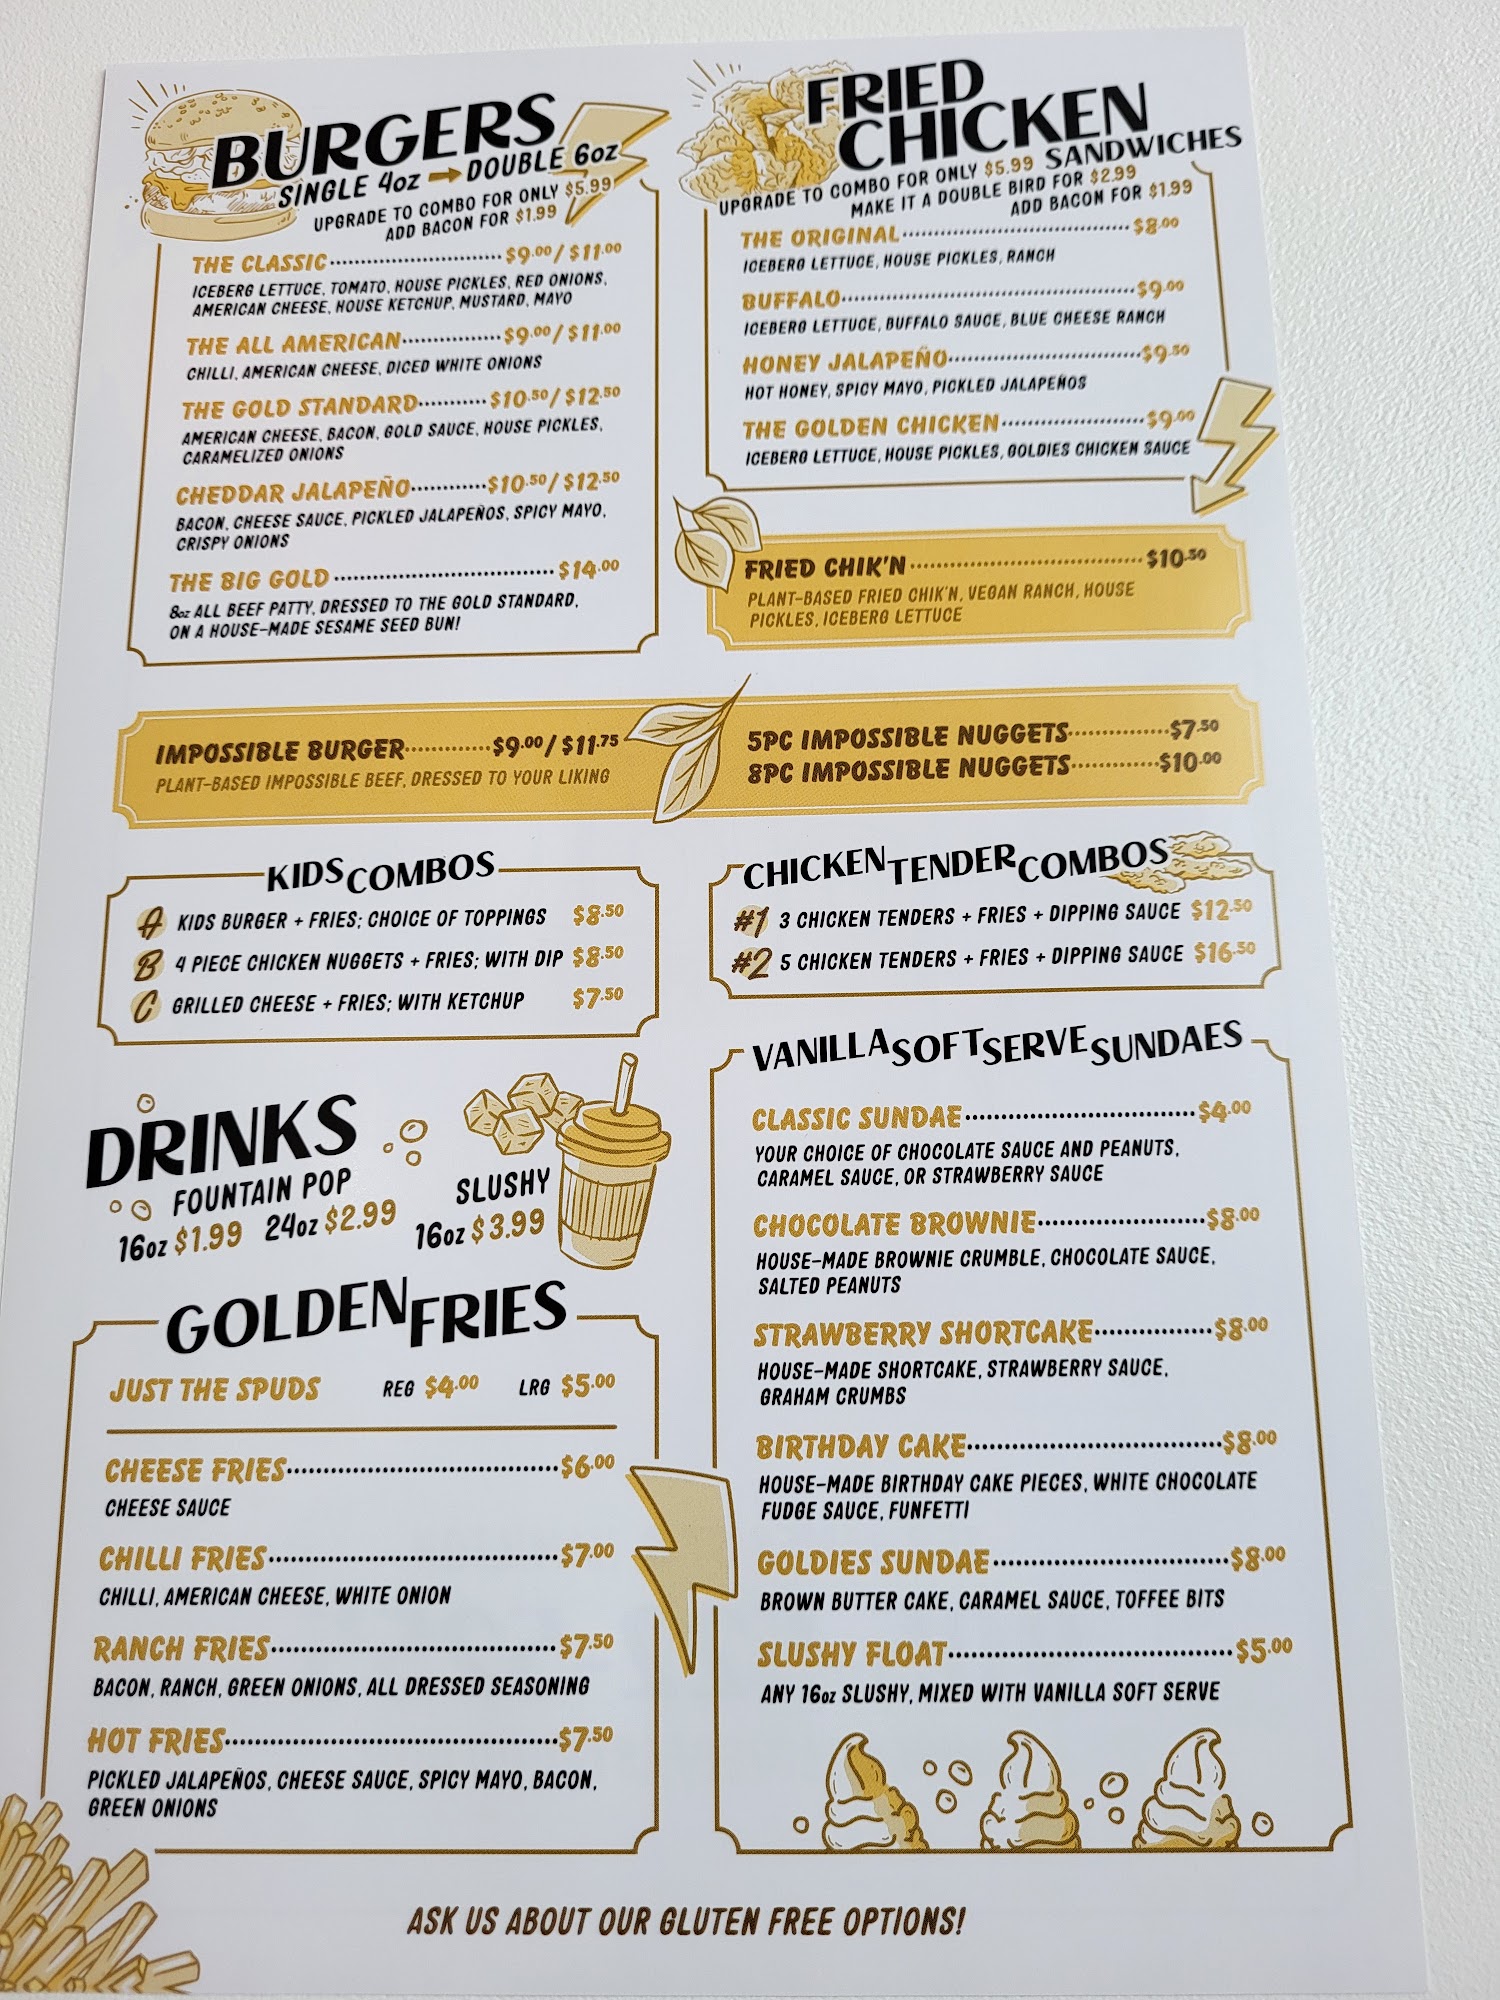 BURGERS
SINGLE 4oz → DOUBLE 6oz
UPGRADE TO COMBO FOR ONLY $5.99
ADD BACON FOR $1.99
THE CLASSIC $9.00/$11.00
ICEBERG LETTUCE, TOMATO, HOUSE PICKLES, RED ONIONS,
AMERICAN CHEESE, HOUSE KETCHUP, MUSTARD, MAYO
THE ALL AMERICAN $9.00/$11.00
CHILLI, AMERICAN CHEESE, DICED WHITE ONIONS
THE GOLD STANDARD $10.50/$12.50
AMERICAN CHEESE, BACON, GOLD SAUCE, HOUSE PICKLES,
CARAMELIZED ONIONS
CHEDDAR JALAPEÑO $10.50/$12.50
BACON, CHEESE SAUCE, PICKLED JALAPEÑOS, SPICY MAYO,
CRISPY ONIONS
THE BIG GOLD $14.00
8oz ALL BEEF PATTY, DRESSED TO THE GOLD STANDARD,
ON A HOUSE-MADE SESAME SEED BUN!
FRIED
CHICKEN
SANDWICHES
UPGRADE TO COMBO FOR ONLY $5.99
MAKE IT A DOUBLE BIRD FOR $2.99
ADD BACON FOR $1.99
THE ORIGINAL $8.00
ICEBERG LETTUCE, HOUSE PICKLES, RANCH
BUFFALO $9.00
ICEBERG LETTUCE, BUFFALO SAUCE, BLUE CHEESE RANCH
HONEY JALAPEÑO $9.50
HOT HONEY, SPICY MAYO, PICKLED JALAPEÑOS
THE GOLDEN CHICKEN $9.00
ICEBERG LETTUCE, HOUSE PICKLES, GOLDIES CHICKEN SAUCE
FRIED CHIK'N $10.50
PLANT-BASED FRIED CHIK'N, VEGAN RANCH, HOUSE
PICKLES, ICEBERG LETTUCE
IMPOSSIBLE BURGER $9.00/$11.75
PLANT-BASED IMPOSSIBLE BEEF, DRESSED TO YOUR LIKING
5PC IMPOSSIBLE NUGGETS $7.50
8PC IMPOSSIBLE NUGGETS $10.00
KIDS COMBOS
A KIDS BURGER + FRIES; CHOICE OF TOPPINGS $8.50
B 4 PIECE CHICKEN NUGGETS + FRIES; WITH DIP $8.50
C GRILLED CHEESE + FRIES; WITH KETCHUP $7.50
CHICKEN TENDER COMBOS
#1 3 CHICKEN TENDERS + FRIES + DIPPING SAUCE $12.50
#2 5 CHICKEN TENDERS + FRIES + DIPPING SAUCE $16.50
DRINKS
FOUNTAIN POP
16oz $1.99 24oz $2.99
SLUSHY
16oz $3.99
GOLDEN FRIES
JUST THE SPUDS REG $4.00 LRG $5.00
CHEESE FRIES $6.00
CHEESE SAUCE
CHILLI FRIES $7.00
CHILLI, AMERICAN CHEESE, WHITE ONION
RANCH FRIES $7.50
BACON, RANCH, GREEN ONIONS, ALL DRESSED SEASONING
HOT FRIES $7.50
PICKLED JALAPEÑOS, CHEESE SAUCE, SPICY MAYO, BACON,
GREEN ONIONS
VANILLA SOFT SERVE SUNDAES
CLASSIC SUNDAE $4.00
YOUR CHOICE OF CHOCOLATE SAUCE AND PEANUTS,
CARAMEL SAUCE, OR STRAWBERRY SAUCE
CHOCOLATE BROWNIE $8.00
HOUSE-MADE BROWNIE CRUMBLE, CHOCOLATE SAUCE,
SALTED PEANUTS
STRAWBERRY SHORTCAKE $8.00
HOUSE-MADE SHORTCAKE, STRAWBERRY SAUCE,
GRAHAM CRUMBS
BIRTHDAY CAKE $8.00
HOUSE-MADE BIRTHDAY CAKE PIECES, WHITE CHOCOLATE
FUDGE SAUCE, FUNFETTI
GOLDIES SUNDAE $8.00
BROWN BUTTER CAKE, CARAMEL SAUCE, TOFFEE BITS
SLUSHY FLOAT $5.00
ANY 16oz SLUSHY, MIXED WITH VANILLA SOFT SERVE
ASK US ABOUT OUR GLUTEN FREE OPTIONS!